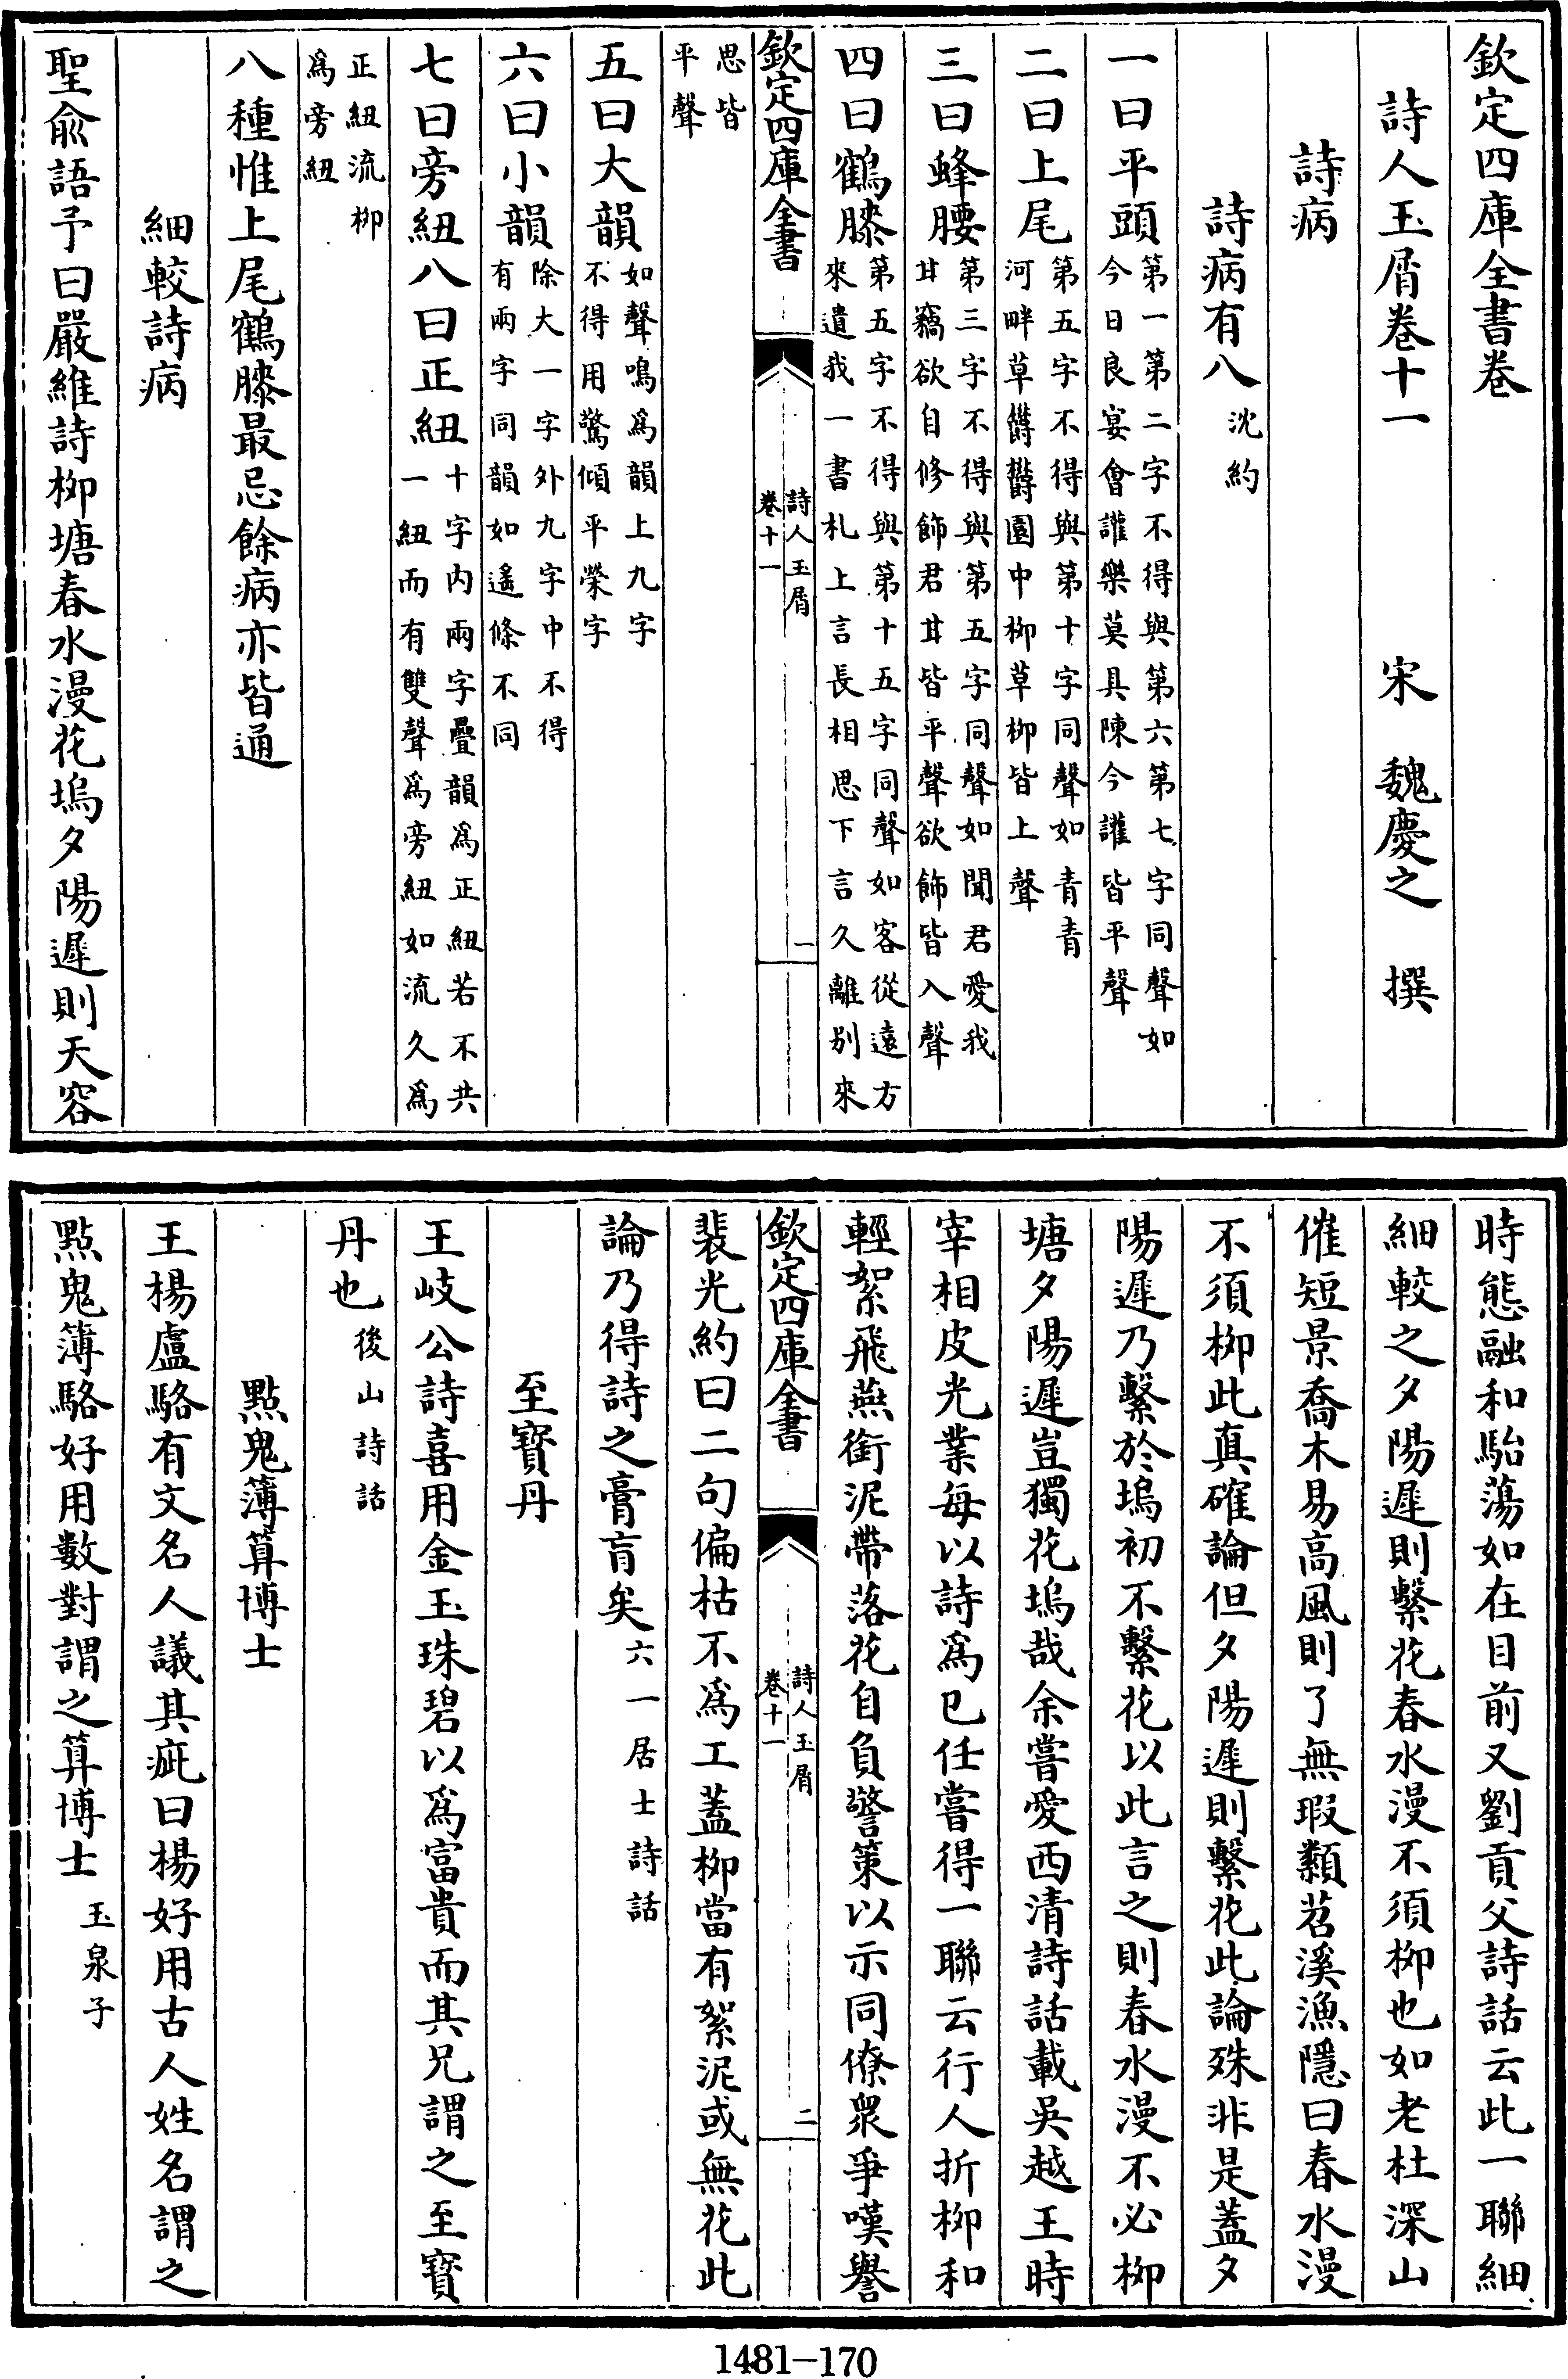 欽定四庫全書卷
詩人玉屑卷十一　宋　魏慶之　撰
詩病
詩病有八沈約
一曰平頭第一第二字不得與第六第七字同聲如今日良宴會讙樂莫具陳今讙皆平聲
二曰上尾第五字不得與第十字同聲如青青河畔草鬱鬱園中柳草柳皆上聲
三曰蜂腰第三字不得與第五字同聲如聞君愛我甘竊欲自修飾君甘皆平聲欲飾皆入聲
四曰鶴膝第五字不得與第十五字同聲如客從遠方來遺我一書札上言長相思下言久離別來
欽定四庫全書
詩人玉屑
卷十一
一
思皆平聲
五曰大韻如聲鳴為韻上九字不得用驚傾平榮字
六曰小韻除大一字外九字中不得有兩字同韻如遙條不同
七曰旁紐八曰正紐十字内兩字疊韻為正紐若不共一紐而有雙聲為旁紐如流久為
正紐流柳為旁紐
八種惟上尾鶴膝最忌餘病亦皆通
細較詩病
聖俞語予曰嚴維詩柳塘春水漫花塢夕陽遲則天容
時態融和駘蕩如在目前又劉貢父詩話云此一聯細
細較之夕陽遲則繫花春水漫不須柳也如老杜深山
催短景喬木易高風則了無瑕纇苕溪漁隱曰春水漫
不須柳此真確論但夕陽遲則繫花此論殊非是蓋夕
陽遲乃繫於塢初不繫花以此言之則春水漫不必柳
塘夕陽遲豈獨花塢哉余嘗愛西清詩話載吳越王時
宰相皮光業每以詩為已任嘗得一聯云行人折柳和
輕絮飛燕銜泥帶落花自負警策以示同僚衆爭嘆譽
欽定四庫全書
詩人玉屑
卷十一
二
裴光約曰二句偏枯不為工蓋柳當有絮泥或無花此
論乃得詩之膏肓矣六一居士詩話
至寶丹
王岐公詩喜用金玉珠碧以為富貴而其兄謂之至寳
丹也後山詩話
點鬼簿算博士
王楊盧駱有文名人議其疵曰楊好用古人姓名謂之
點鬼簿駱好用數對謂之算博士玉泉子
1481-170